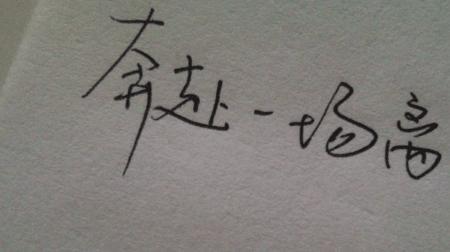 奔赴一场离